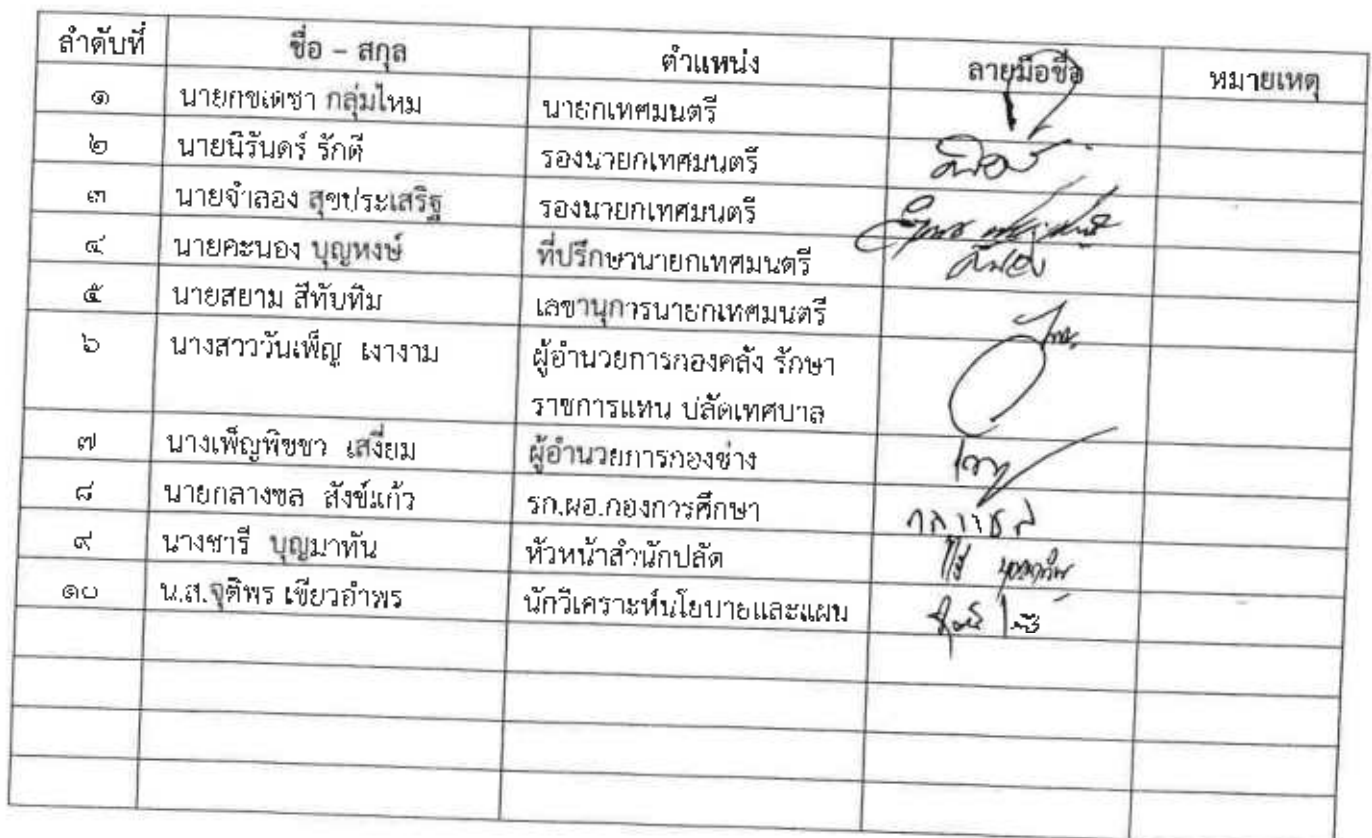 ลำดับที่ ชื่อ – สกุล ตำแหน่ง ลายมือชื่อ หมายเหตุ
๑ นายกชเดชา กลุ่มไหม นายกเทศมนตรี
๒ นายนิรันดร์ รักดี รองนายกเทศมนตรี
๓ นายจำลอง สุขประเสริฐ รองนายกเทศมนตรี
๔ นายคะนอง บุญหงษ์ ที่ปรึกษานายกเทศมนตรี
๕ นายสยาม สีทับทิม เลขานุการนายกเทศมนตรี
๖ นางสาววันเพ็ญ เงางาม ผู้อำนวยการกองคลัง รักษา
ราชการแทน ปลัดเทศบาล
๗ นางเพ็ญพิชชา เสงี่ยม ผู้อำนวยการกองช่าง
๘ นายกลางชล สังข์แก้ว รก.ผอ.กองการศึกษา กลางชล
๙ นางชารี บุญมาทัน หัวหน้าสำนักปลัด
๑๐ น.ส.จุติพร เขียวอำพร นักวิเคราะห์นโยบายและแผน